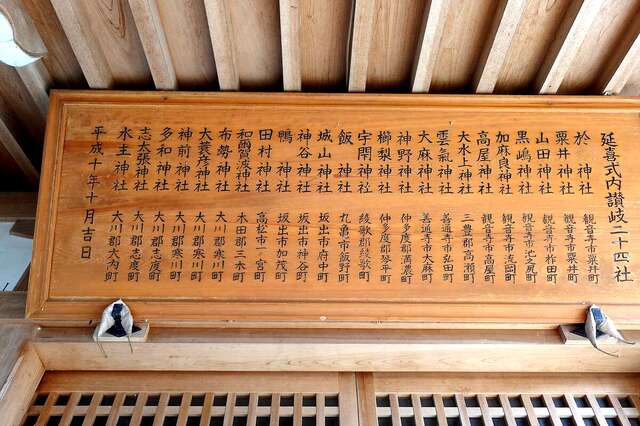 延喜式内讃岐二十四社
於神社 観音寺市粟井町
粟井神社 観音寺市粟井町
山田神社 観音寺市柞田町
黒嶋神社 観音寺市池之尻町
加麻良神社 観音寺市流岡町
高屋神社 観音寺市高屋町
大水上神社 三豊郡高瀬町
雲氣神社 善通寺市弘田町
大麻神社 善通寺市大麻町
神野神社 仲多度郡満濃町
櫛梨神社 仲多度郡琴平町
宇閇神社 綾歌郡綾歌町
飯神社 丸亀市飯野町
城山神社 坂出市府中町
神谷神社 坂出市神谷町
鴨神社 坂出市加茂町
田村神社 高松市一宮町
和爾賀波神社 木田郡三木町
布勢神社 大川郡寒川町
大蓑彦神社 大川郡寒川町
神前神社 大川郡寒川町
多和神社 大川郡志度町
志太張神社 大川郡志度町
水主神社 大川郡大内町
平成十年十月吉日